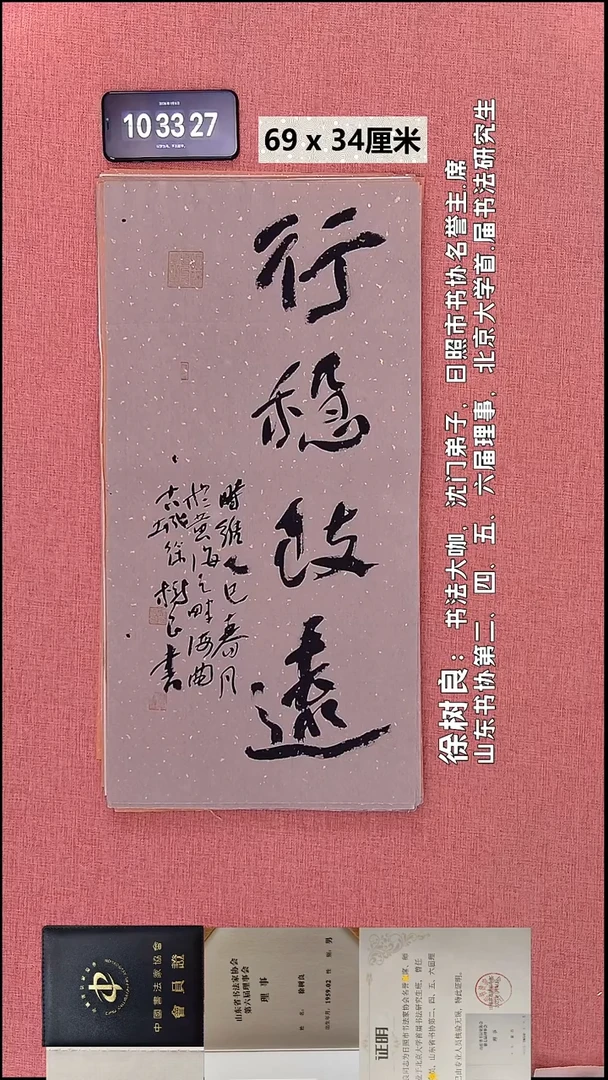 10 33 27
69 x 34厘米
行稳致远
时维乙巳春月
于黄海之畔海曲
古城徐树良书
徐树良：书法大咖，沈门弟子，日照市书协名誉主席
山东书协第二、四、五、六届理事，北京大学首届书法研究生
中國書法家協會
會員證
山东省书法家协会
第六届理事会
理事
姓名：徐树良
性别：男
出生年月：1959.02
证明